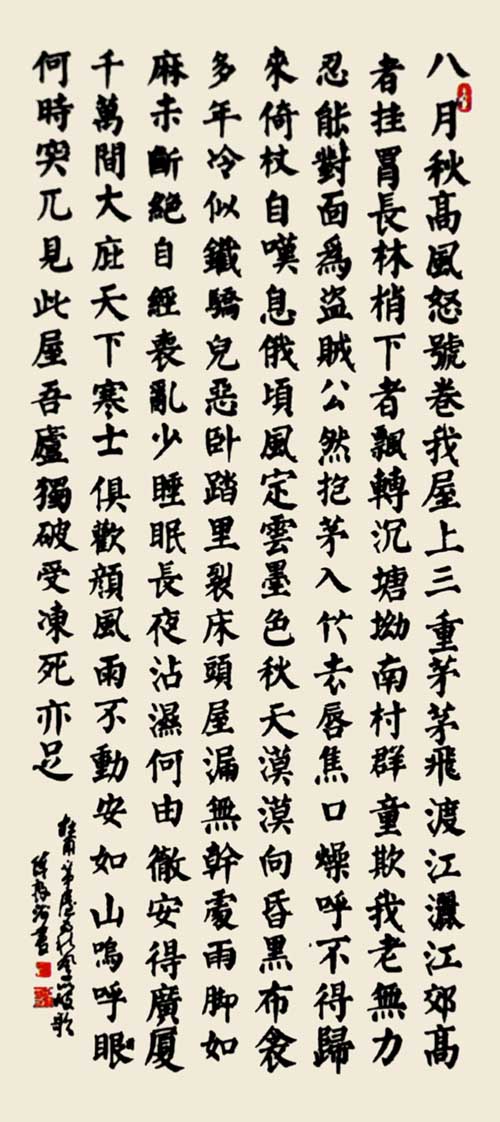 八月秋高風怒號卷我屋上三重茅茅飛渡江灑江郊高
者挂罥長林梢下者飄轉沉塘坳南村群童欺我老無力
忍能對面為盜賊公然抱茅入竹去唇焦口燥呼不得歸
來倚杖自嘆息俄頃風定雲墨色秋天漠漠向昏黑布衾
多年冷似鐵驕兒惡卧踏里裂床頭屋漏無幹處雨脚如
麻未斷絕自經喪亂少睡眠長夜沾濕何由徹安得廣厦
千萬間大庇天下寒士俱歡顔風雨不動安如山嗚呼眼
何時突兀見此屋吾廬獨破受凍死亦足
杜甫茅屋為秋風所破歌